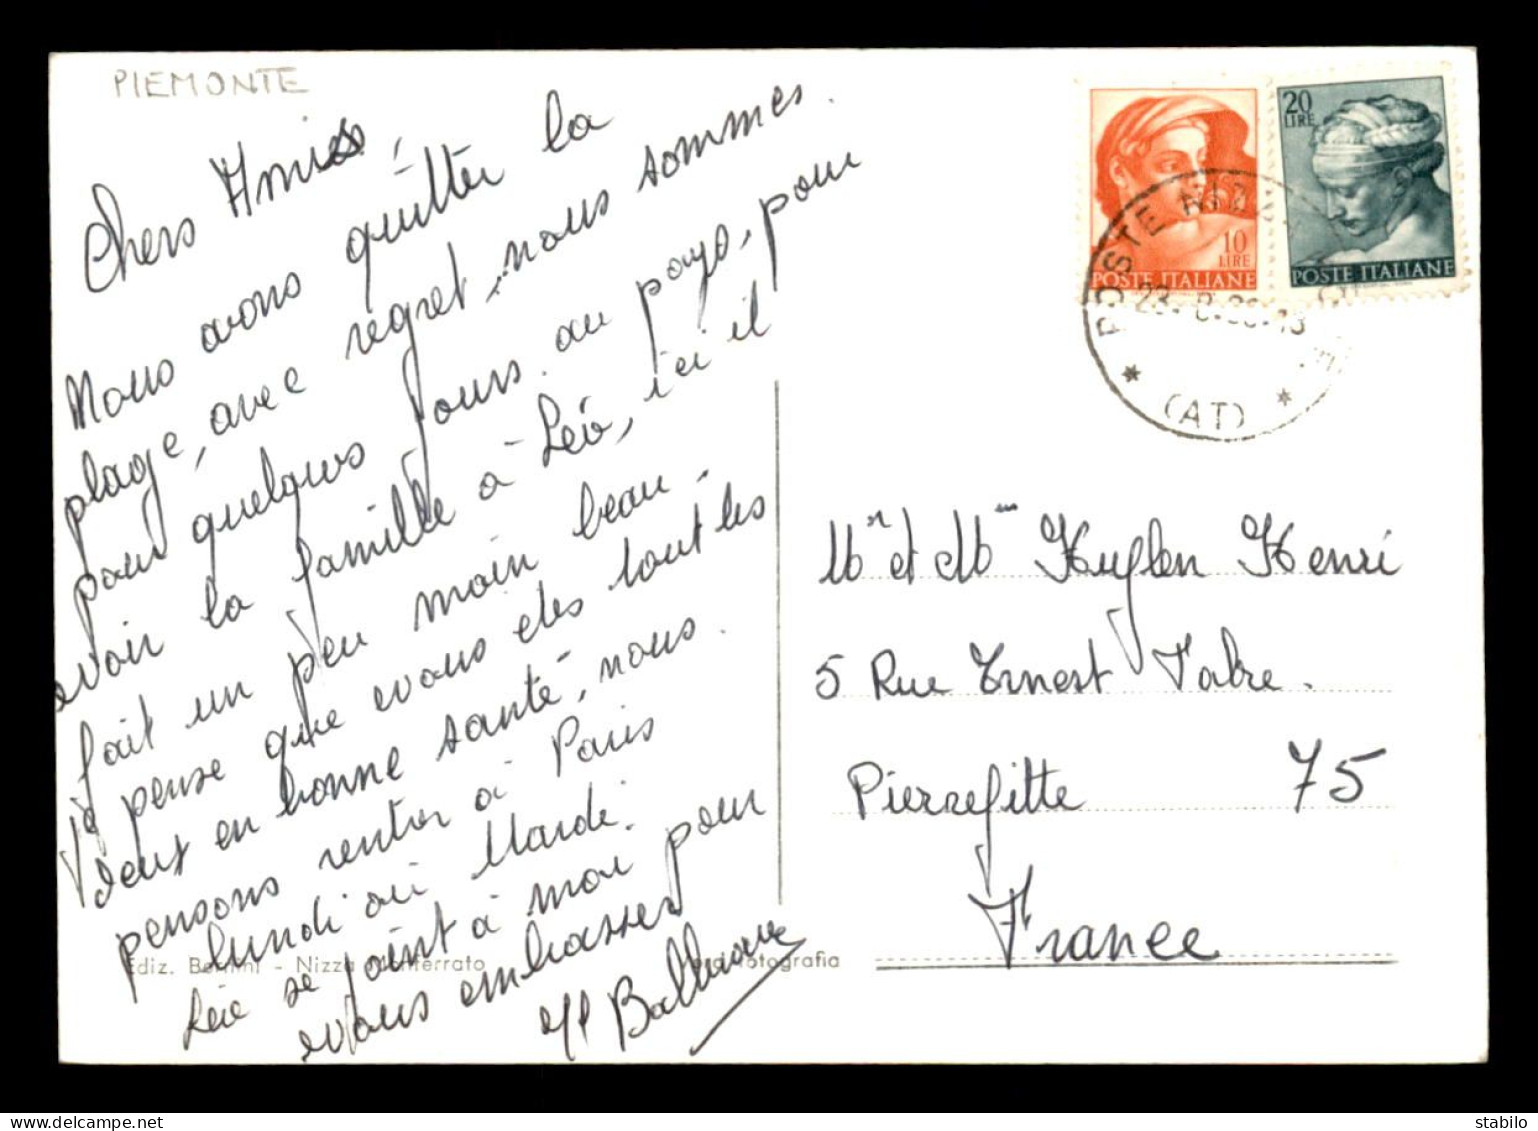 PIEMONTE
Chers Amis,
Nous avons quitter la
plage, avec regret, nous sommes
pour quelques jours au pays, pour
avoir la famille à Léo, ici il
fait un peu moin beau.
Je pense que vous etes tout les
deut en bonne santé, nous
pensons rentrer à Paris
lundi ou Mardi.
Léo se joint à moi pour
vous embrasser
10 LIRE
POSTE ITALIANE
20 LIRE
POSTE ITALIANE
POSTE NIZZA
(AT)
Mr et Mme Huglen Henri
5 Rue Ernest Fabre.
Pierrefitte 75
France
Ediz. Bernini - Nizza Monferrato
fotografia
stabilo